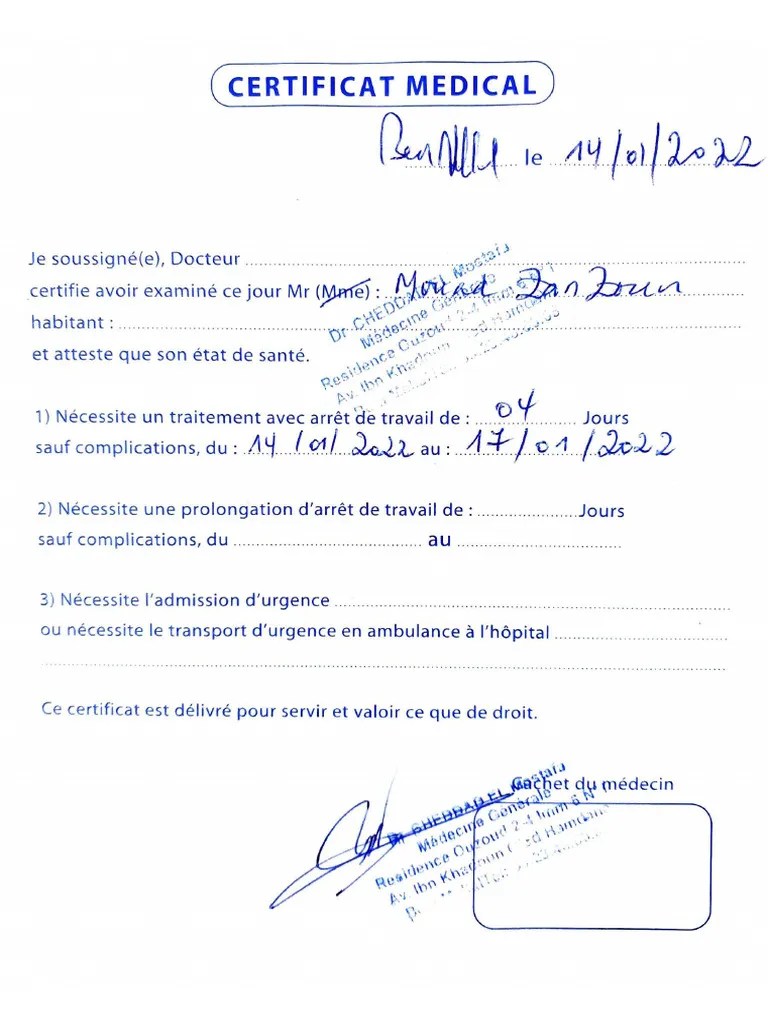 CERTIFICAT MEDICAL
le 14/01/2022
Je soussigné(e), Docteur
certifie avoir examiné ce jour Mr (Mme) : Mourad Zan Zoun
habitant :
et atteste que son état de santé.
Dr CHEDDAD EL Mostafa
Médecine Générale
Residence Ouzoud 2-4 Imm 6 N° 1
Av. Ibn Khadoun Hamdane
1) Nécessite un traitement avec arrêt de travail de : 04 Jours
sauf complications, du : 14/01/2022 au : 17/01/2022
2) Nécessite une prolongation d'arrêt de travail de : Jours
sauf complications, du au
3) Nécessite l'admission d'urgence
ou nécessite le transport d'urgence en ambulance à l'hôpital
Ce certificat est délivré pour servir et valoir ce que de droit.
Cachet du médecin
Dr CHEDDAD EL Mostafa
Médecine Générale
Residence Ouzoud 2-4 Imm 6 N°
Av. Ibn Khadoun Hamdane